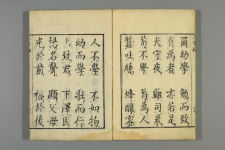 爾幼學 勉而致
有為者 亦若是
犬守夜 雞司晨
苟不學 曷為人
蠶吐絲 蜂釀蜜
人不學 不如物
幼而學 壯而行
上致君 下澤民
揚名聲 顯父母
光於前 裕於後